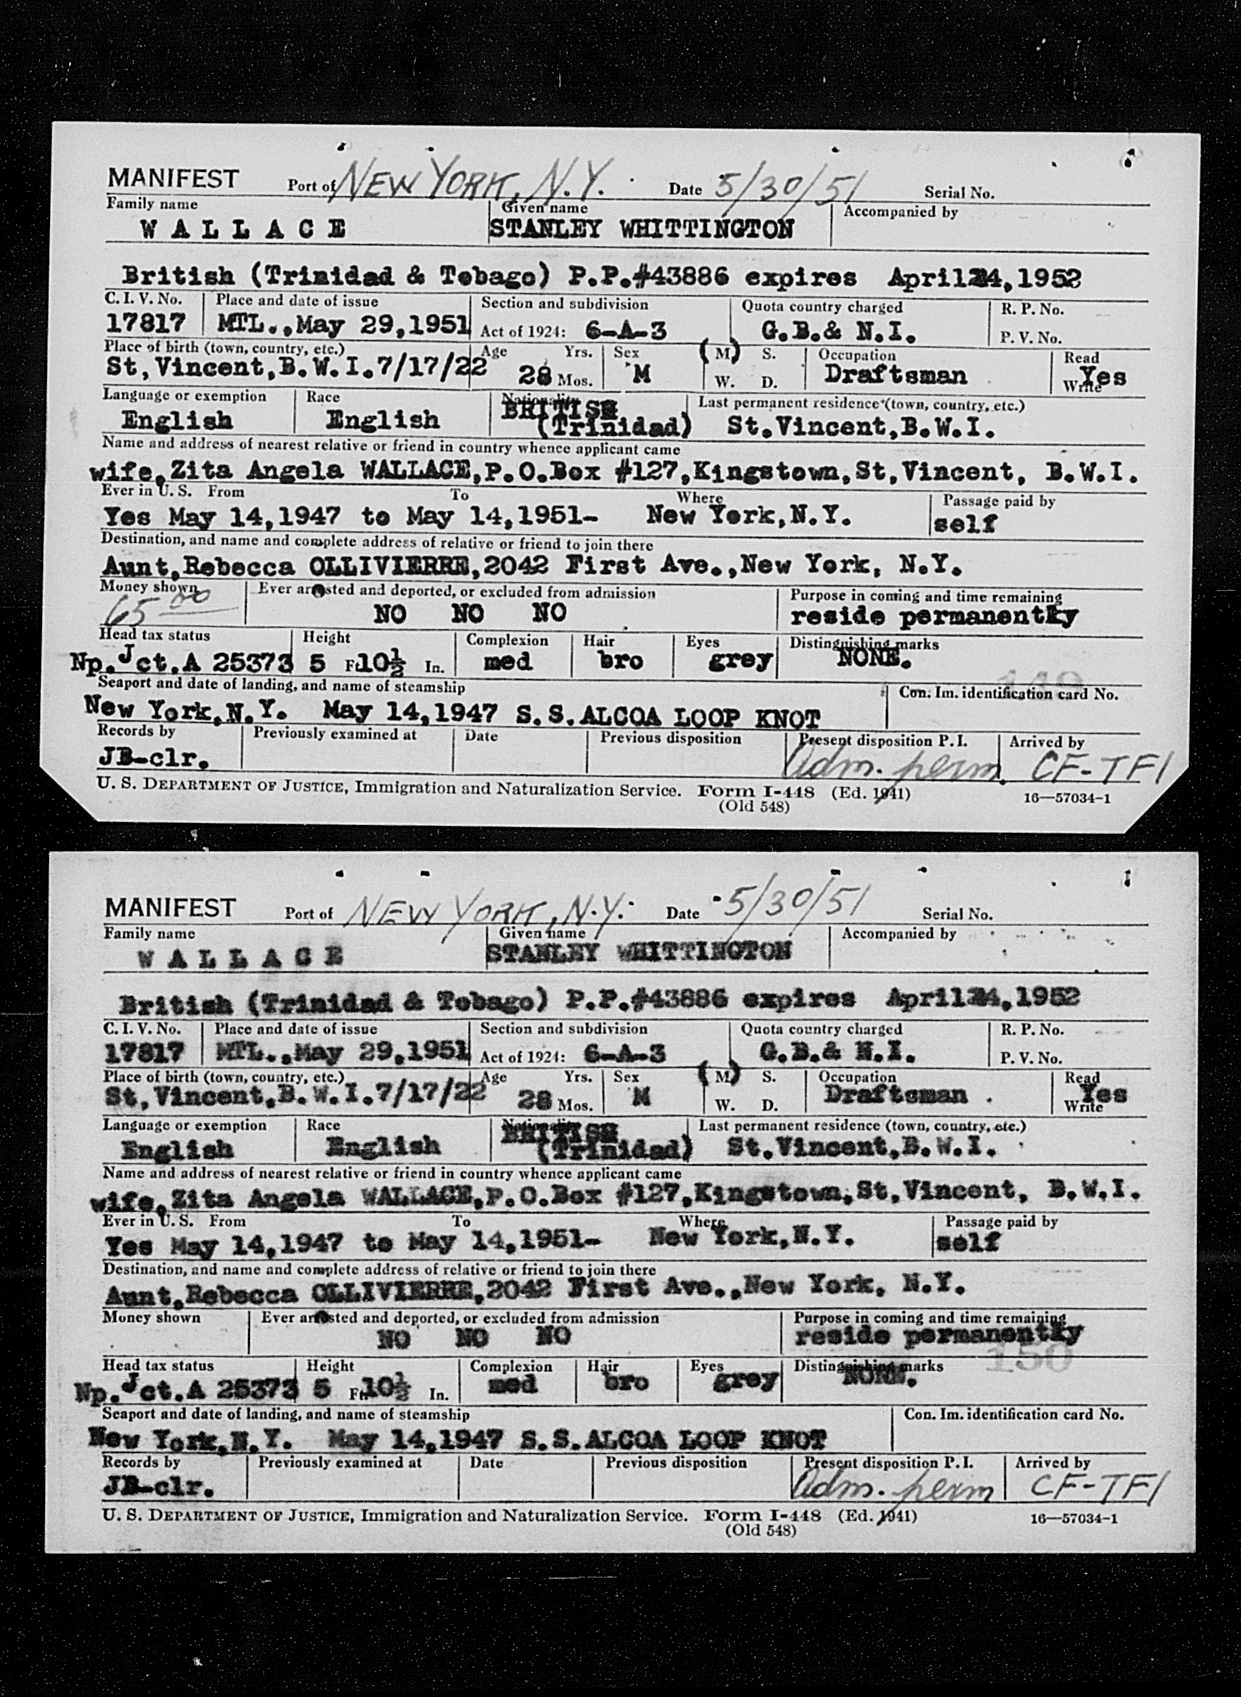 MANIFEST Port of NEW YORK, N.Y. Date 5/30/51 Serial No.
Family name Given name Accompanied by
WALLACE STANLEY WHITTINGTON
British (Trinidad & Tobago) P.P.#43886 expires April 24,1952
C. I. V. No. Place and date of issue Section and subdivision Quota country charged R. P. No.
17817 MTL.,May 29,1951 Act of 1924: 6-A-3 G.B.& N.I. P. V. No.
Place of birth (town, country, etc.) Age Yrs. Sex (M) S. Occupation Read
St,Vincent,B.W.I.7/17/22 28 Mos. M W. D. Draftsman Write Yes
Language or exemption Race Nationality Last permanent residence (town, country, etc.)
English English BRITISH (Trinidad) St.Vincent,B.W.I.
Name and address of nearest relative or friend in country whence applicant came
wife,Zita Angela WALLACE,P.O.Box #127,Kingstown,St,Vincent, B.W.I.
Ever in U. S. From To Where Passage paid by
Yes May 14,1947 to May 14,1951- New York,N.Y. self
Destination, and name and complete address of relative or friend to join there
Aunt,Rebecca OLLIVIERRE,2042 First Ave.,New York, N.Y.
Money shown Ever arrested and deported, or excluded from admission Purpose in coming and time remaining
65 00 NO NO NO reside permanently
Head tax status Height Complexion Hair Eyes Distinguishing marks
Np.Jct.A 25373 5 Ft. 10½ In. med bro grey NONE. 149
Seaport and date of landing, and name of steamship Con. Im. identification card No.
New York,N.Y. May 14,1947 S.S.ALCOA LOOP KNOT
Records by Previously examined at Date Previous disposition Present disposition P. I. Arrived by
JB-clr. Adm. perm. CF-TFI
U. S. DEPARTMENT OF JUSTICE, Immigration and Naturalization Service. Form I-448 (Ed. 1941) 16—57034-1
(Old 548)
MANIFEST Port of NEW YORK, N.Y. Date 5/30/51 Serial No.
Family name Given name Accompanied by
WALLACE STANLEY WHITTINGTON
British (Trinidad & Tobago) P.P.#43886 expires April 24,1952
C. I. V. No. Place and date of issue Section and subdivision Quota country charged R. P. No.
17817 MTL.,May 29,1951 Act of 1924: 6-A-3 G.B.& N.I. P. V. No.
Place of birth (town, country, etc.) Age Yrs. Sex (M) S. Occupation Read
St,Vincent,B.W.I.7/17/22 28 Mos. M W. D. Draftsman Write Yes
Language or exemption Race Nationality Last permanent residence (town, country, etc.)
English English BRITISH (Trinidad) St.Vincent,B.W.I.
Name and address of nearest relative or friend in country whence applicant came
wife,Zita Angela WALLACE,P.O.Box #127,Kingstown,St,Vincent, B.W.I.
Ever in U. S. From To Where Passage paid by
Yes May 14,1947 to May 14,1951- New York,N.Y. self
Destination, and name and complete address of relative or friend to join there
Aunt,Rebecca OLLIVIERRE,2042 First Ave.,New York, N.Y.
Money shown Ever arrested and deported, or excluded from admission Purpose in coming and time remaining
NO NO NO reside permanently
Head tax status Height Complexion Hair Eyes Distinguishing marks 150
Np.Jct.A 25373 5 Ft. 10½ In. med bro grey NONE.
Seaport and date of landing, and name of steamship Con. Im. identification card No.
New York,N.Y. May 14,1947 S.S.ALCOA LOOP KNOT
Records by Previously examined at Date Previous disposition Present disposition P. I. Arrived by
JB-clr. Adm. perm CF-TFI
U. S. DEPARTMENT OF JUSTICE, Immigration and Naturalization Service. Form I-448 (Ed. 1941) 16—57034-1
(Old 548)